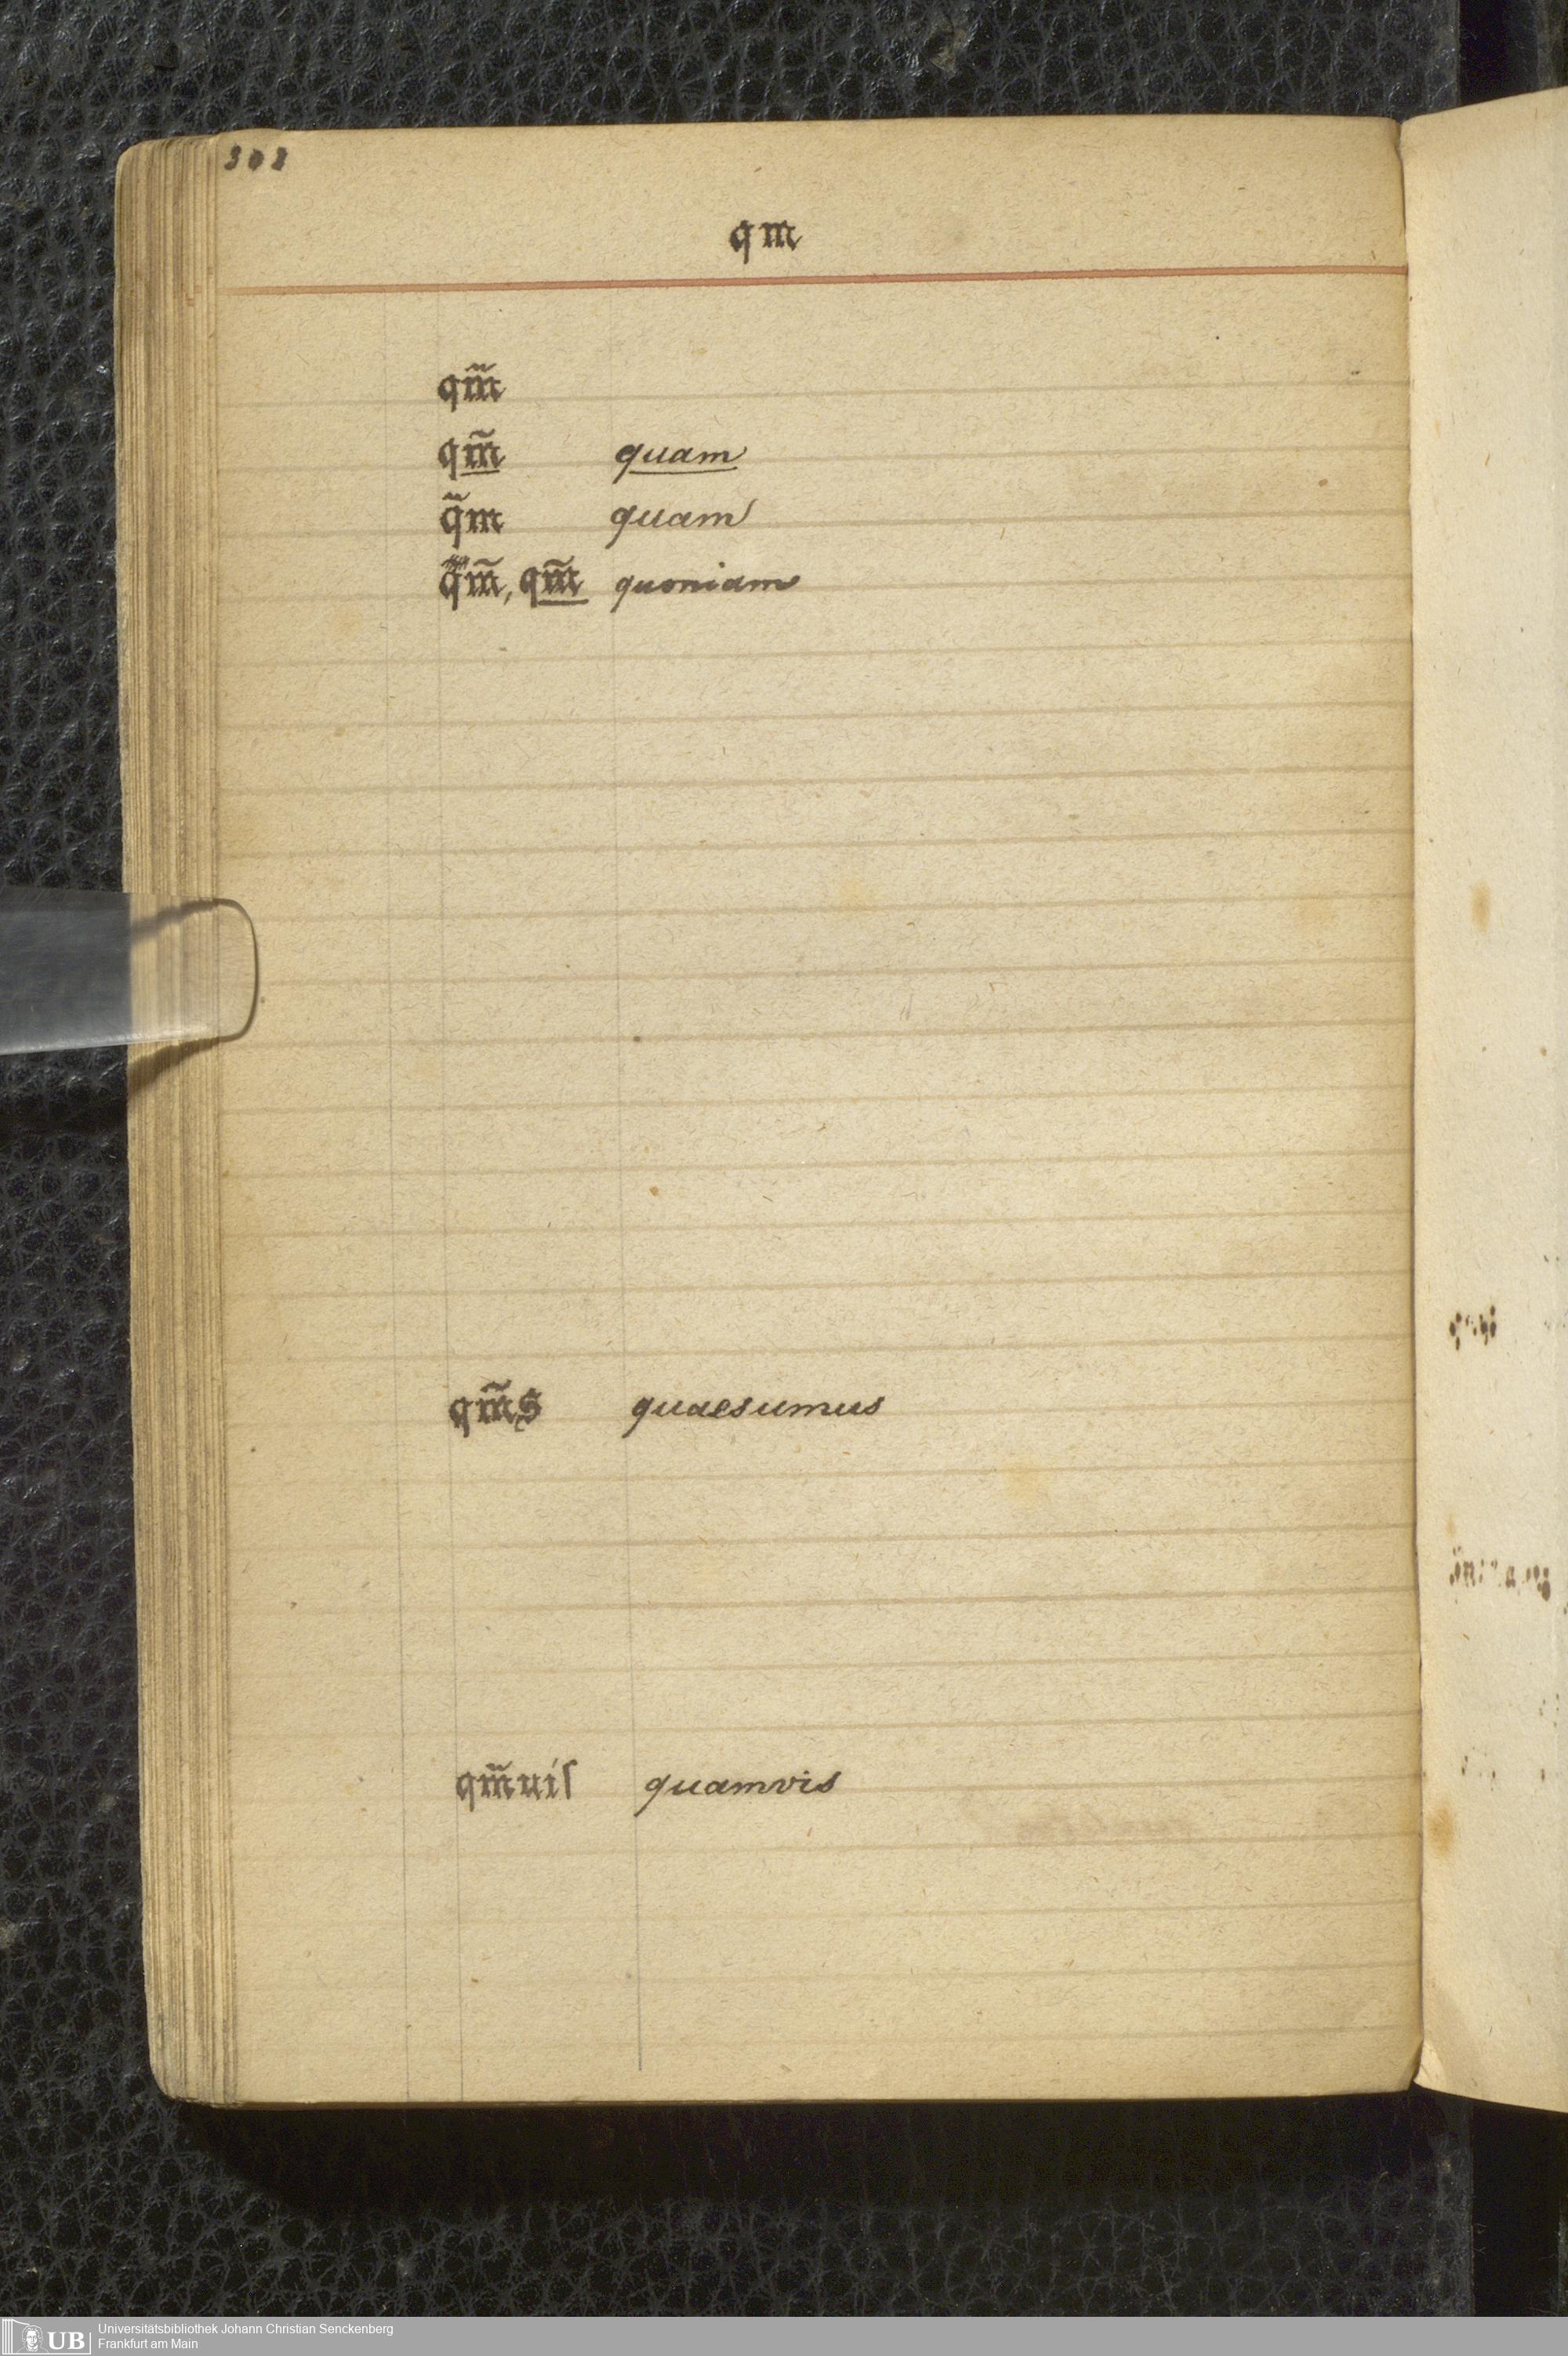 303
qm
qm̃
qm̃ quam
q̃m quam
q̃m̃, qm̃ quoniam
qm̃s quaesumus
qm̃uiſ quamvis
UB Universitätsbibliothek Johann Christian Senckenberg
Frankfurt am Main